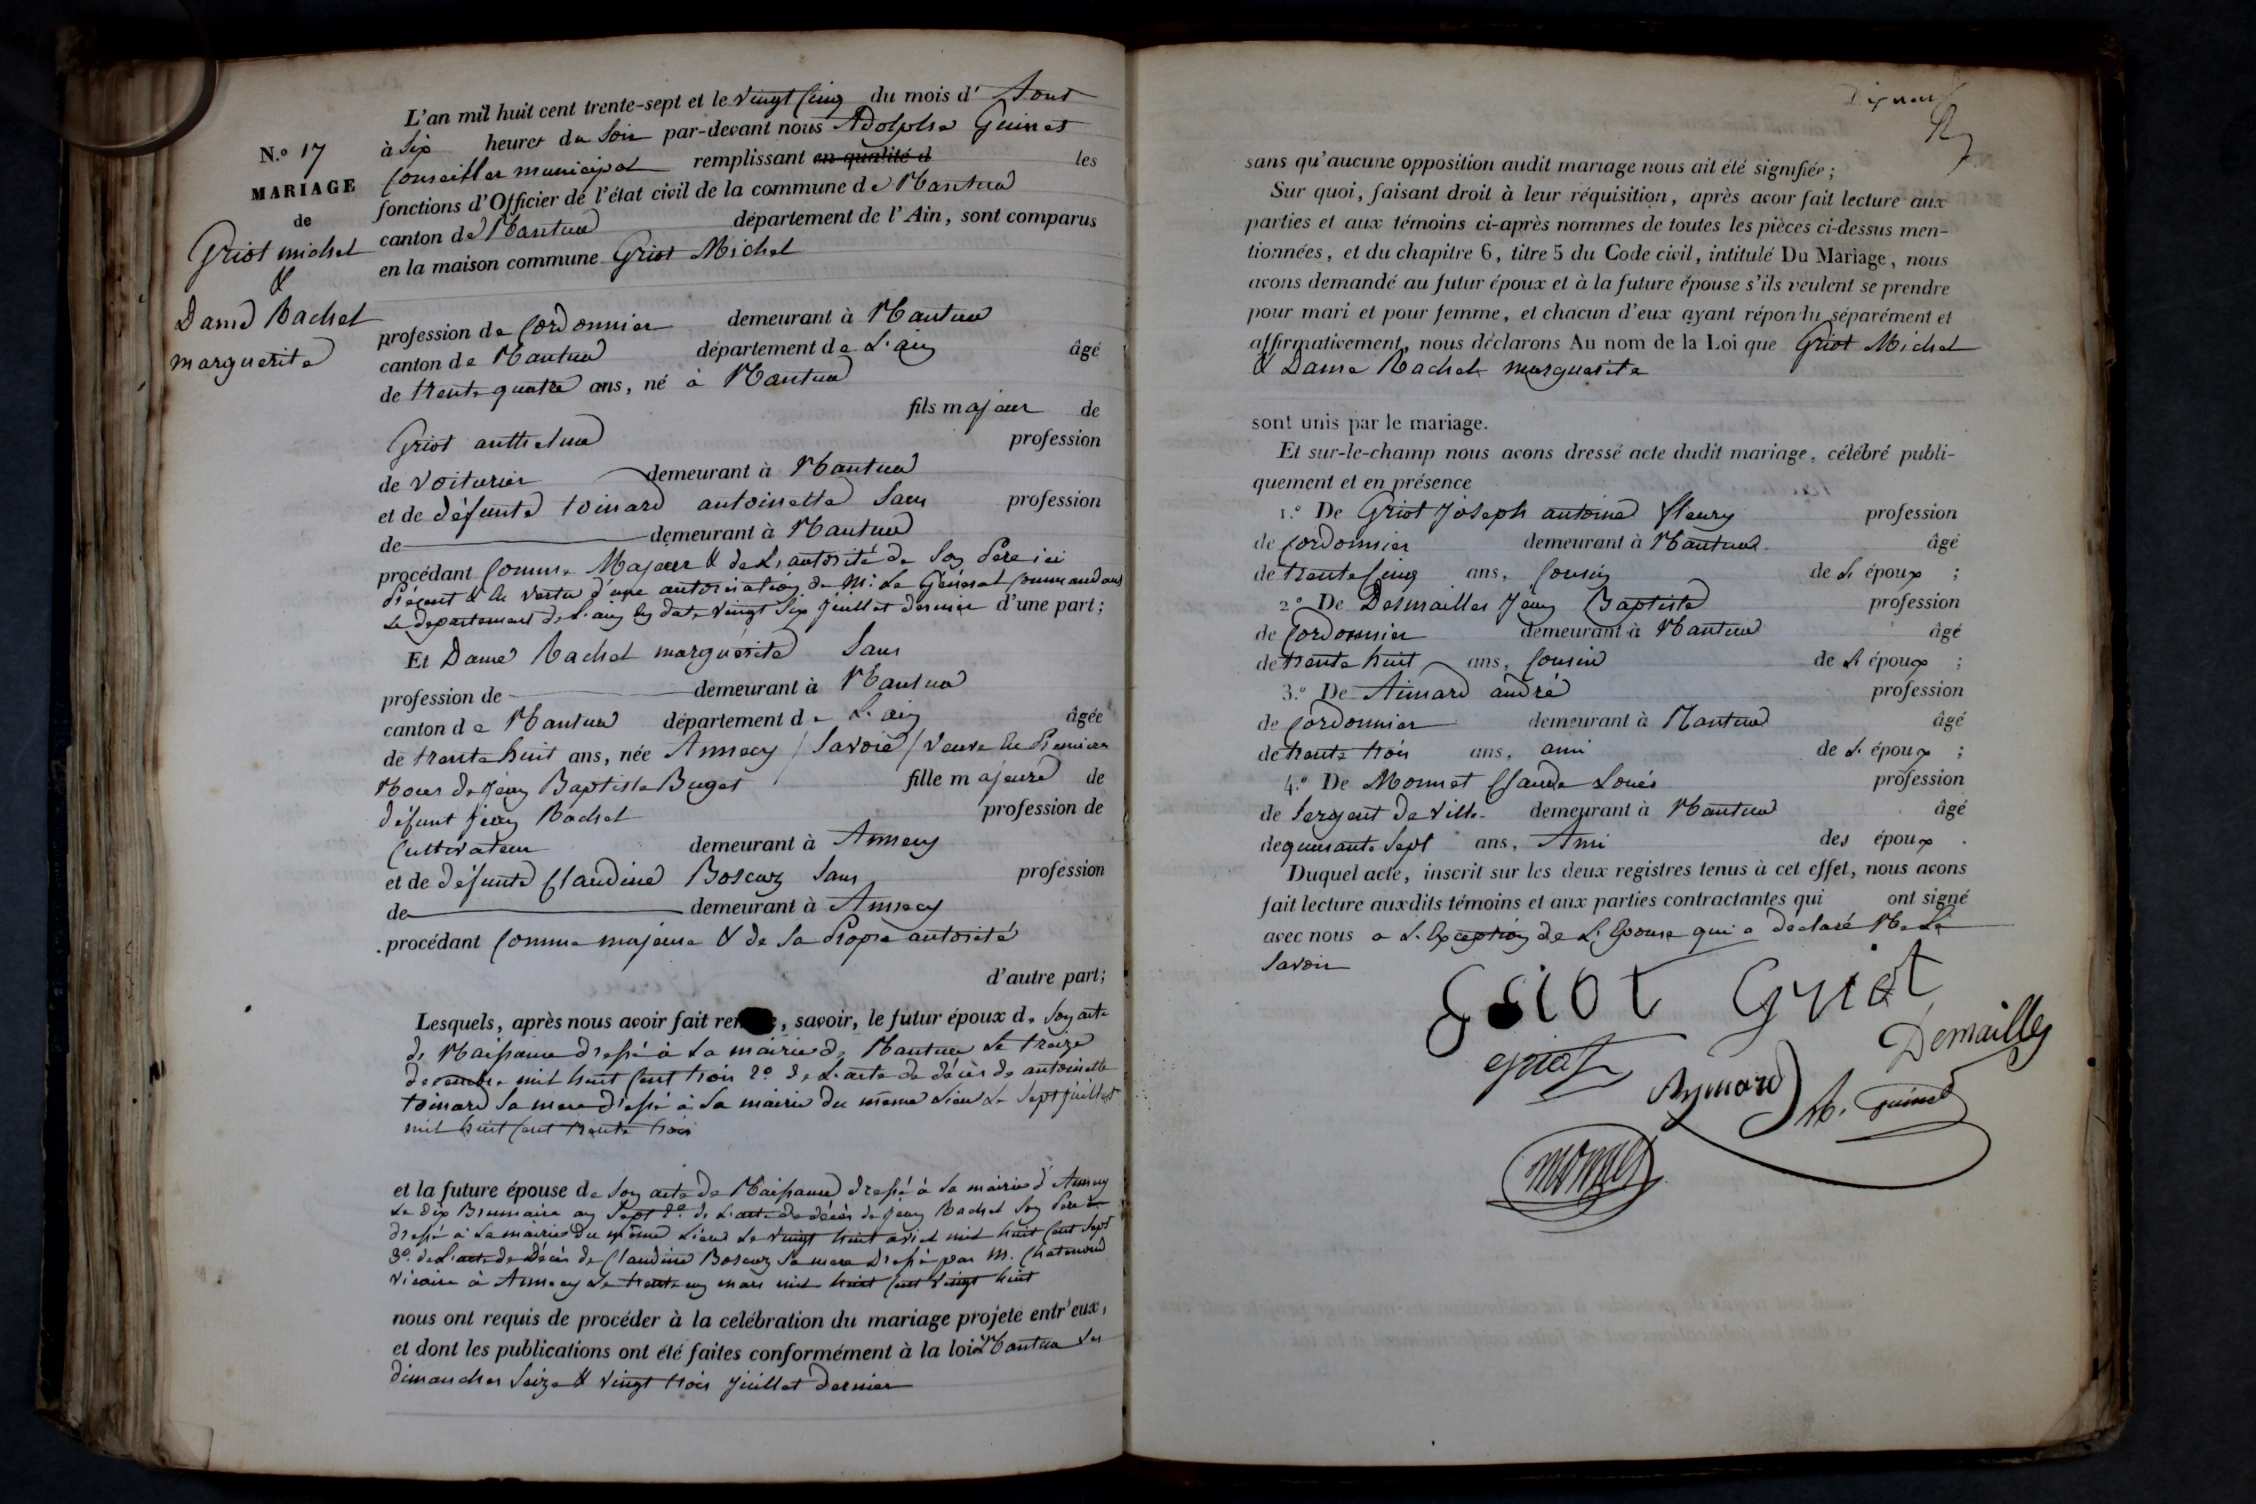 N.º 17
MARIAGE
de
Griot michel
&
Dame Rachel
marguerite
L'an mil huit cent trente-sept et le vingt cinq du mois d' Aout
à Six heures du Soir par-devant nous Adolphe Guinet
Conseiller municipal remplissant en qualité d les
fonctions d'Officier de l'état civil de la commune de Nantua
canton de Nantua département de l'Ain, sont comparus
en la maison commune Griot Michel
profession de Cordonnier demeurant à Nantua
canton de Nantua département de L'ain âgé
de trente quatre ans, né à Nantua
fils majeur de
Griot anthelme profession
de voiturier demeurant à Nantua
et de défunte toinard antoinette Sans profession
de demeurant à Nantua
procédant Comme Majeur & de L'autorité de Son Pere ici
Présent & En vertu d'une autorisation de Mr. Le Général Commandant
Le departement de L'ain En date vingt Six Juillet dernier d'une part;
Et Dame Rachel marguerite Sans
profession de demeurant à Nantua
canton de Nantua département de L'ain âgée
de trente huit ans, née Annecy / Savoie / veuve En Premier
Noces de Jean Baptiste Buget fille majeure de
défunt Jean Rachel profession de
Cultivateur demeurant à Annecy
et de défunte Claudine Boscaz Sans profession
de demeurant à Annecy
procédant Comme majeure & de Sa Propre autorité
d'autre part;
Lesquels, après nous avoir fait , savoir, le futur époux de Son acte
de Naissance dressé à La mairie de Nantua Le treize
decembre mil huit Cent trois 2º de L'acte de décès de antoinette
toinard Sa mere dressé à La mairie du même Lieu Le Sept juillet
mil huit Cent trente trois
et la future épouse de Son acte de Naissance dressé à La mairie d'Annecy
Le dix Brumaire an Sept 2º de L'acte de décès de Jean Rachel Son Pere
dressé à La mairie du même Lieu Le vingt huit avril mil huit Cent Sept
3º de L'acte de Décès de Claudine Boscaz Sa mere dressé par M.
vicaire à Annecy Le trente un mars mil huit Cent vingt huit
nous ont requis de procéder à la célébration du mariage projeté entr'eux,
et dont les publications ont été faites conformément à la loi à Nantua Les
dimanches Seize & vingt trois Juillet dernier
sans qu'aucune opposition audit mariage nous ait été signifiée;
Sur quoi, faisant droit à leur réquisition, après avoir fait lecture aux
parties et aux témoins ci-après nommes de toutes les pièces ci-dessus men-
tionnées, et du chapitre 6, titre 5 du Code civil, intitulé Du Mariage, nous
avons demandé au futur époux et à la future épouse s'ils veulent se prendre
pour mari et pour femme, et chacun d'eux ayant répondu séparément et
affirmativement, nous déclarons Au nom de la Loi que Griot Michel
& Dame Rachel marguerite
sont unis par le mariage.
Et sur-le-champ nous avons dressé acte dudit mariage, célébré publi-
quement et en présence
1.º De Griot Joseph antoine fleury profession
de Cordonnier demeurant à Nantua âgé
de trente Cinq ans, Cousin de L'époux ;
2.º De Desmailles Jean Baptiste profession
de Cordonnier demeurant à Nantua âgé
de trente huit ans, Cousin de L'époux ;
3.º De Aimard andré profession
de Cordonnier demeurant à Nantua âgé
de trente trois ans, ami de L'époux ;
4.º De Monnet Claude Louis profession
de Sergent de ville demeurant à Nantua âgé
de quarante Sept ans, Ami des époux .
Duquel acte, inscrit sur les deux registres tenus à cet effet, nous avons
fait lecture auxdits témoins et aux parties contractantes qui ont signé
avec nous a L'Exception de L'Epouse qui a declaré Ne Le
Savoir
Griot Griot
griot Demailles
Aymard A. Guinet
monnet